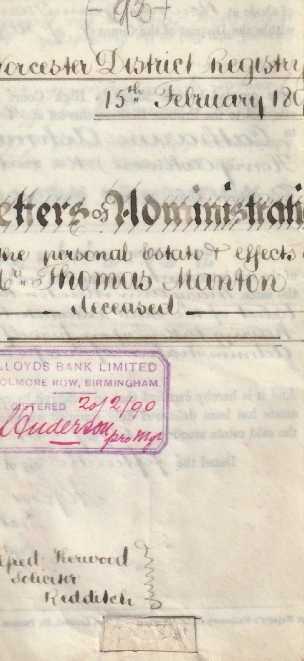 -95-
orcester District Registry
15th February 18
etters of Administrati
he personal Estate & effects
Thomas Manton
deceased
LLOYDS BANK LIMITED
OLMORE ROW, BIRMINGHAM.
TERED 20/2/90
Anderson
pro Mgr
lfred Kerwood
Solicitor
Redditch